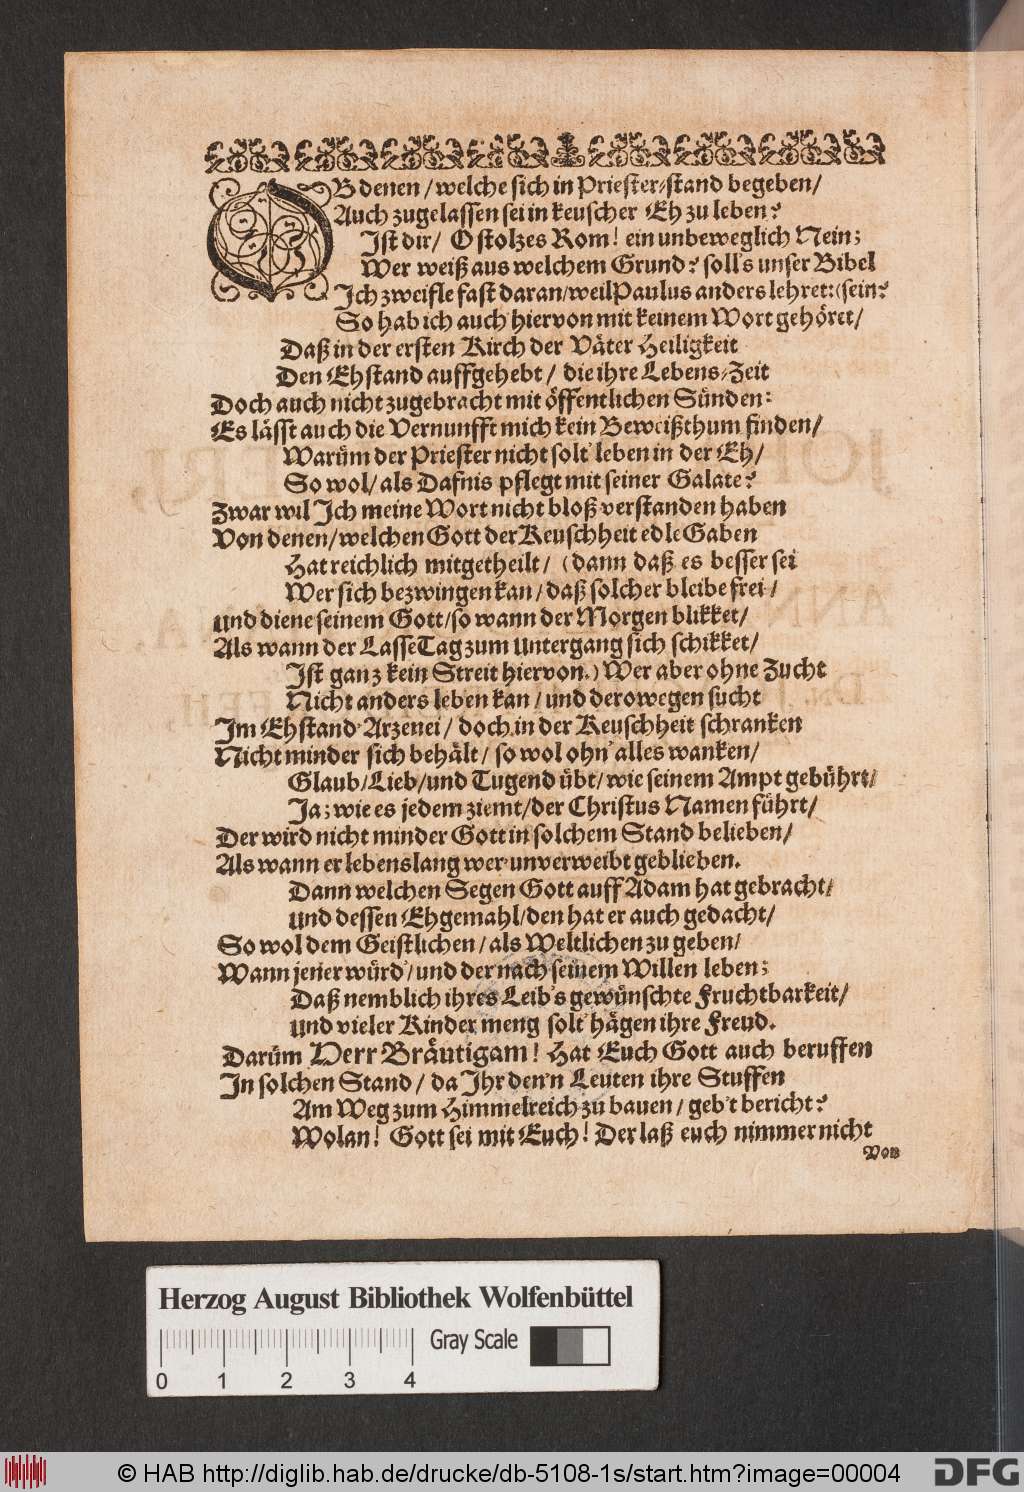 OB denen / welche sich in Priester-stand begeben /
Auch zugelassen sei in keuscher Eh zu leben?
Ist dir / O stolzes Rom! ein unbeweglich Nein;
Wer weiß aus welchem Grund? soll's unser Bibel
Ich zweifle fast daran / weil Paulus anders lehret: (sein?
So hab ich auch hiervon mit keinem Wort gehöret /
Daß in der ersten Kirch der Väter Heiligkeit
Den Ehstand auffgehebt / die ihre Lebens-Zeit
Doch auch nicht zugebracht mit öffentlichen Sünden:
Es lässt auch die Vernunfft mich kein Beweißthum finden /
Warüm der Priester nicht solt' leben in der Eh /
So wol / als Dafnis pflegt mit seiner Galate?
Zwar wil Ich meine Wort nicht bloß verstanden haben
Von denen / welchen Gott der Keuschheit edle Gaben
Hat reichlich mitgetheilt / (dann daß es besser sei
Wer sich bezwingen kan / daß solcher bleibe frei /
und diene seinem Gott / so wann der Morgen blikket /
Als wann der Lasse Tag zum untergang sich schikket /
Ist ganz kein Streit hiervon.) Wer aber ohne Zucht
Nicht anders leben kan / und derowegen sucht
Im Ehstand Arzenei / doch in der Keuschheit schranken
Nicht minder sich behält / so wol ohn' alles wanken /
Glaub / Lieb / und Tugend übt / wie seinem Ampt gebührt /
Ja; wie es jedem ziemt / der Christus Namen führt /
Der wird nicht minder Gott in solchem Stand belieben /
Als wann er lebenslang wer unverweibt geblieben.
Dann welchen Segen Gott auff Adam hat gebracht /
und dessen Ehgemahl / den hat er auch gedacht /
So wol dem Geistlichen / als Weltlichen zu geben /
Wann jener würd' / und der nach seinem Willen leben;
Daß nemblich ihres Leib's gewünschte Fruchtbarkeit /
und vieler Kinder meng solt' hägen ihre Freud.
Darüm Herr Bräutigam! Hat Euch Gott auch beruffen
In solchen Stand / da Ihr den'n Leuten ihre Stuffen
Am Weg zum Himmelreich zu bauen / geb't bericht?
Wolan! Gott sei mit Euch! Der laß euch nimmer nicht
Von
Herzog August Bibliothek Wolfenbüttel
Gray Scale
0 1 2 3 4
© HAB http://diglib.hab.de/drucke/db-5108-1s/start.htm?image=00004
DFG